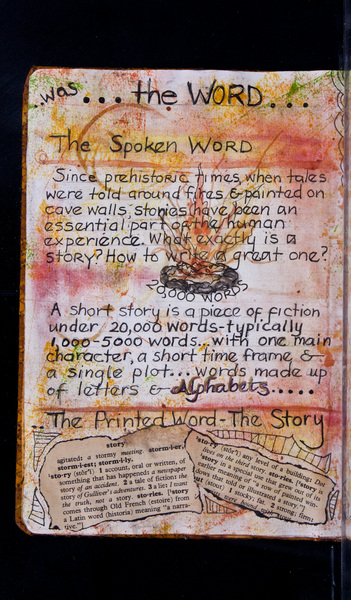 ..was... the WORD...
The Spoken WORD
Since prehistoric times, when tales
were told around fires & painted on
cave walls, stories have been an
essential part of the human
experience. What exactly is a
story? How to write a great one?
20,000 WORDS
A short story is a piece of fiction
under 20,000 words-typically
1,000-5000 words...with one main
character, a short time frame &
a single plot...words made up
of letters & Alphabets.....
..The Printed Word-The Story
story
agitated: a stormy meeting storm·i·er;
storm·i·est; storm·i·ly.
'sto·ry (stōr'ī) 1 account, oral or written, of
something that has happened: a newspaper
story of an accident. 2 a tale of fiction: the
story of Gulliver's adventures. 3 a lie: I want
the truth, not a story. sto·ries. ['story
comes through Old French (estorie) from
a Latin word (historia) meaning "a narra-
tive."]
²sto·ry (stōr'ī) any level of a building: Dan
lives on the third story. sto·ries. [²story
story is a special use that grew out of its
earlier meaning of "a row of painted win-
dows that told or illustrated a story."]
stout 1 stocky; 2 strong; firm: